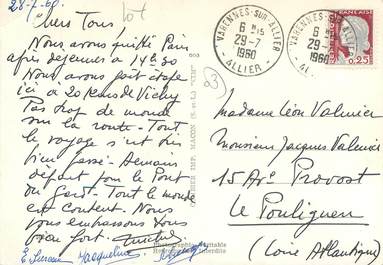 28-7-60.
Chers Tous,
Nous avons quitté Paris
après déjeuner à 14h30
Nous avons fait étape
ici à 20 kms de Vichy
Pas trop de monde
sur la route - Tout
le voyage s'est très
bien passé - Demain
départ pour le Pont
du Gard - Tout le monde
est content. Nous
vous embrassons tous
bien fort.
Jacqueline
lot
93
COMBIER IMP. MACON (S.-et-L.) "CIM"
Photographie Véritable
Interdite
VARENNES-SUR-ALLIER
6 H 15
29-7
1960
- ALLIER -
VARENNES-SUR-ALLIER
6 H 15
29-7
1960
0,25
Madame Léon Valmier
Monsieur Jacques Valmier
15 Av. Provost
Le Pouliguen
(Loire Atlantique)